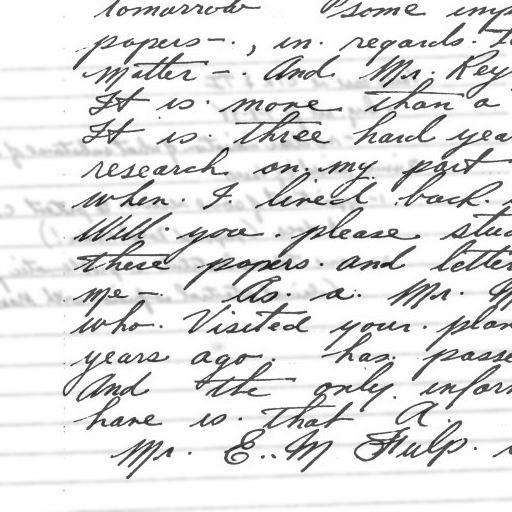 tomorrow some
papers-., in. regards.
Matter-. And Mr. Key
It is. more than a
It is. three hard yea
research on. my. part
when. I. lived back.
Will. you. please. stud
these papers. and letter
me-. As. a. Mr.
who. Visited your. plan
years ago. has. passe
And the only. infor
have is. that A.
Mr. E..M Fulp.